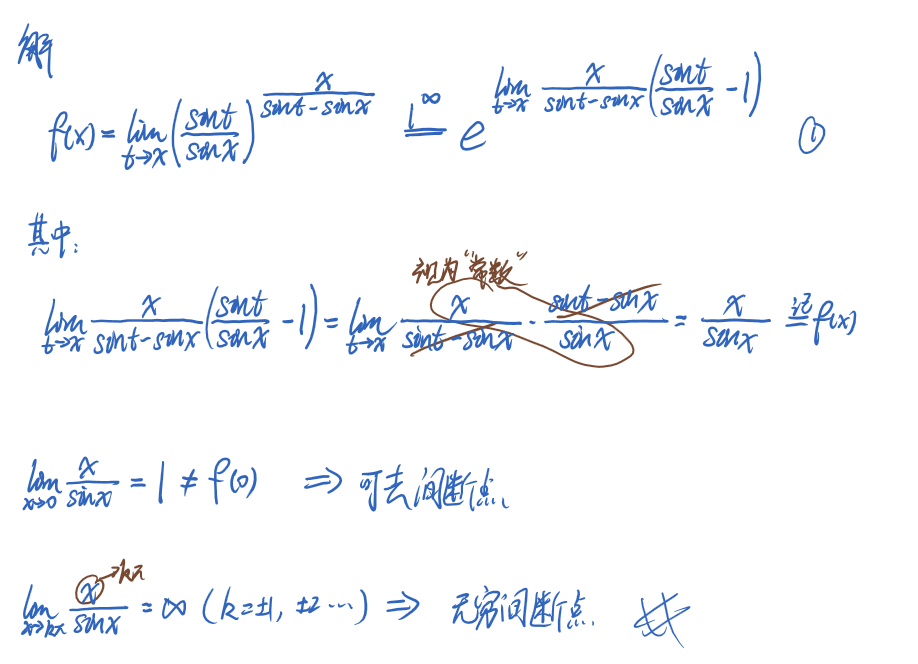 解
f(x) = lim_{t→x} (sint/sinx)^{x/(sint-sinx)} \overset{1^∞}{=} e^{lim_{t→x} x/(sint-sinx) (sint/sinx - 1)} ①
其中:
视为“常数”
lim_{t→x} x/(sint-sinx) (sint/sinx - 1) = lim_{t→x} x/(sint-sinx) · (sint-sinx)/sinx = x/sinx \overset{记}{=} f(x)
lim_{x→0} x/sinx = 1 ≠ f(0) ⇒ 可去间断点
→kπ
lim_{x→kπ} x/sinx = ∞ (k=±1, ±2 ⋯) ⇒ 无穷间断点.